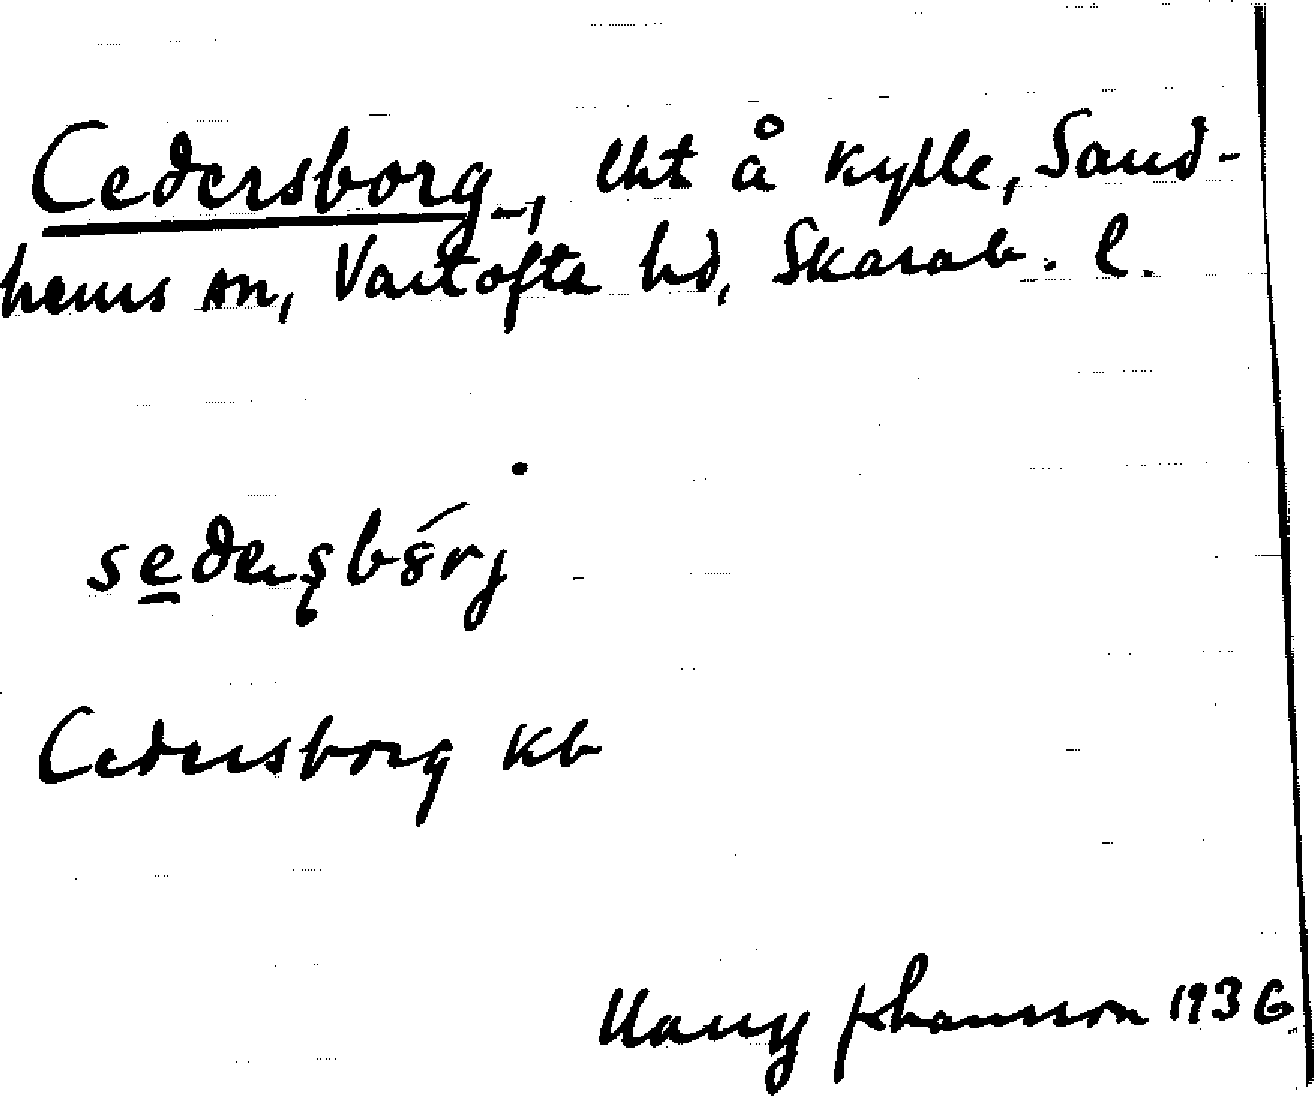 Cedersborg, lht å Kylle, Sand-
hems sn, Vartofta hd, Skarab. l.
Cedersborg kb
Harry Johansson 1936